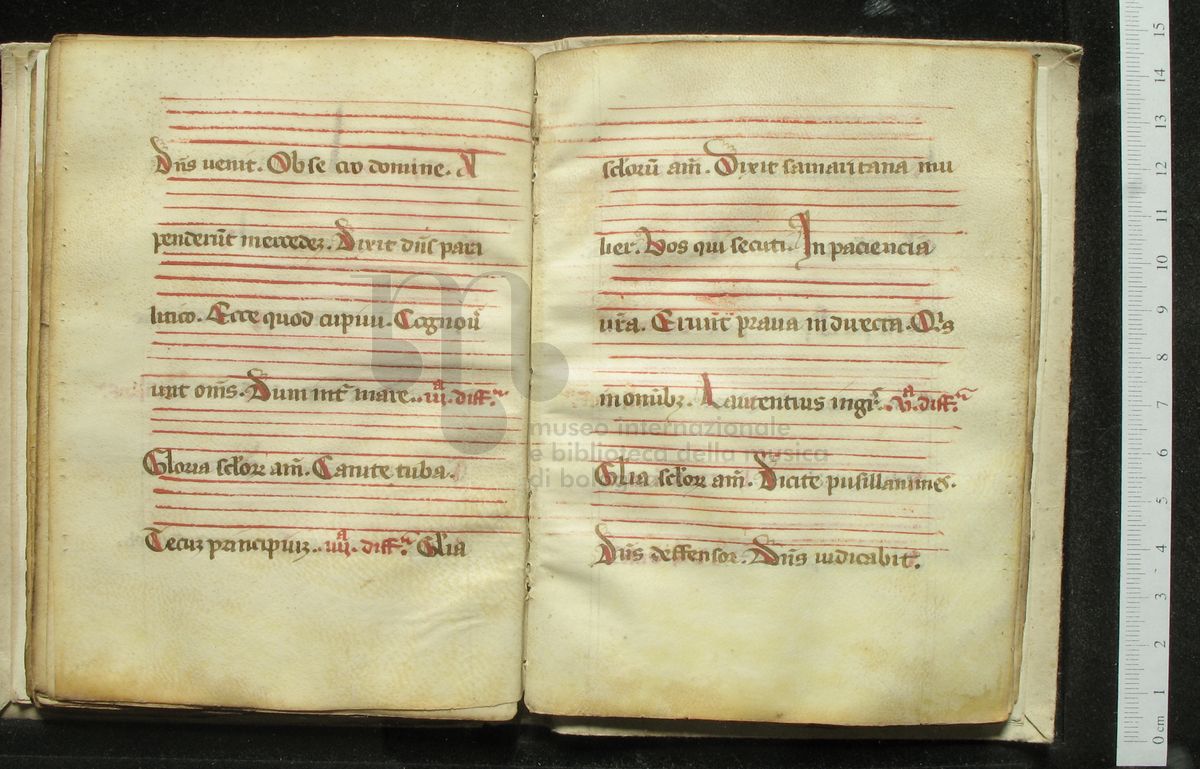 Dn̄s venit. Obse cro domine. A
penderūt mercedeꝫ. Dixit dn̄s para
litico. Ecce quod cupiui. Cognoū
unt om̄s. Dum int̄ mare. .iii.ᵃ diff.ᵃ
Gloria sc̄loꝝ am̄. Canite tuba.
Tecuꝫ principiuꝫ. .iiii.ᵃ diff.ᵃ Glia
sclorū am̄. Dixit samaritana mu
lier. Vos qui secuti. In paciencia
ura. Erūnt praua in directa. O
monibꝫ. Laurentius ingr̄. .v.ᵃ diff.ᵃ
Glia sclorꝝ am̄. Dicite pusillanimes.
Dn̄s deffensor. Dn̄s iudicabit.
museo internazionale
e biblioteca della musica
di bologna
15
14
13
12
11
10
9
8
7
6
5
4
3
2
1
0 cm